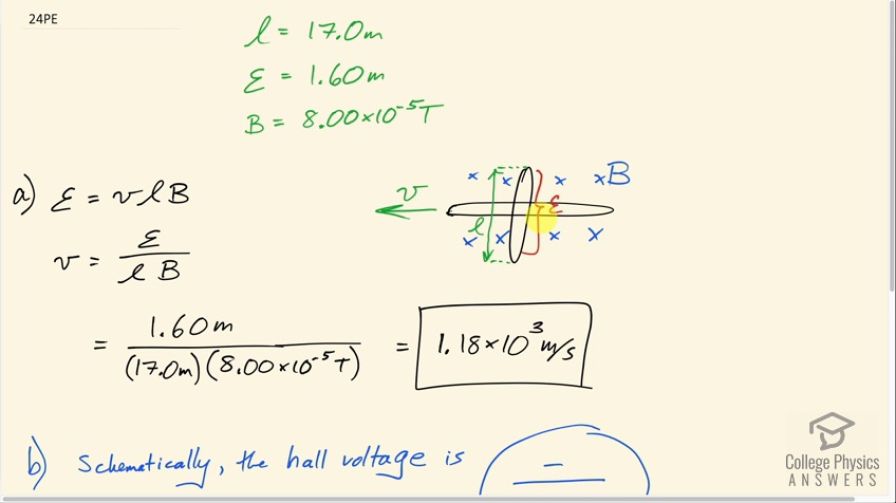 24PE
l = 17.0m
ε = 1.60m
B = 8.00×10⁻⁵T
a) ε = vlB
v = ε / l B
= 1.60m / (17.0m)(8.00×10⁻⁵T) = 1.18×10³ m/s
v
l
ε
× × × ×B
× × × ×
b) Schematically, the hall voltage is
−
College Physics
ANSWERS